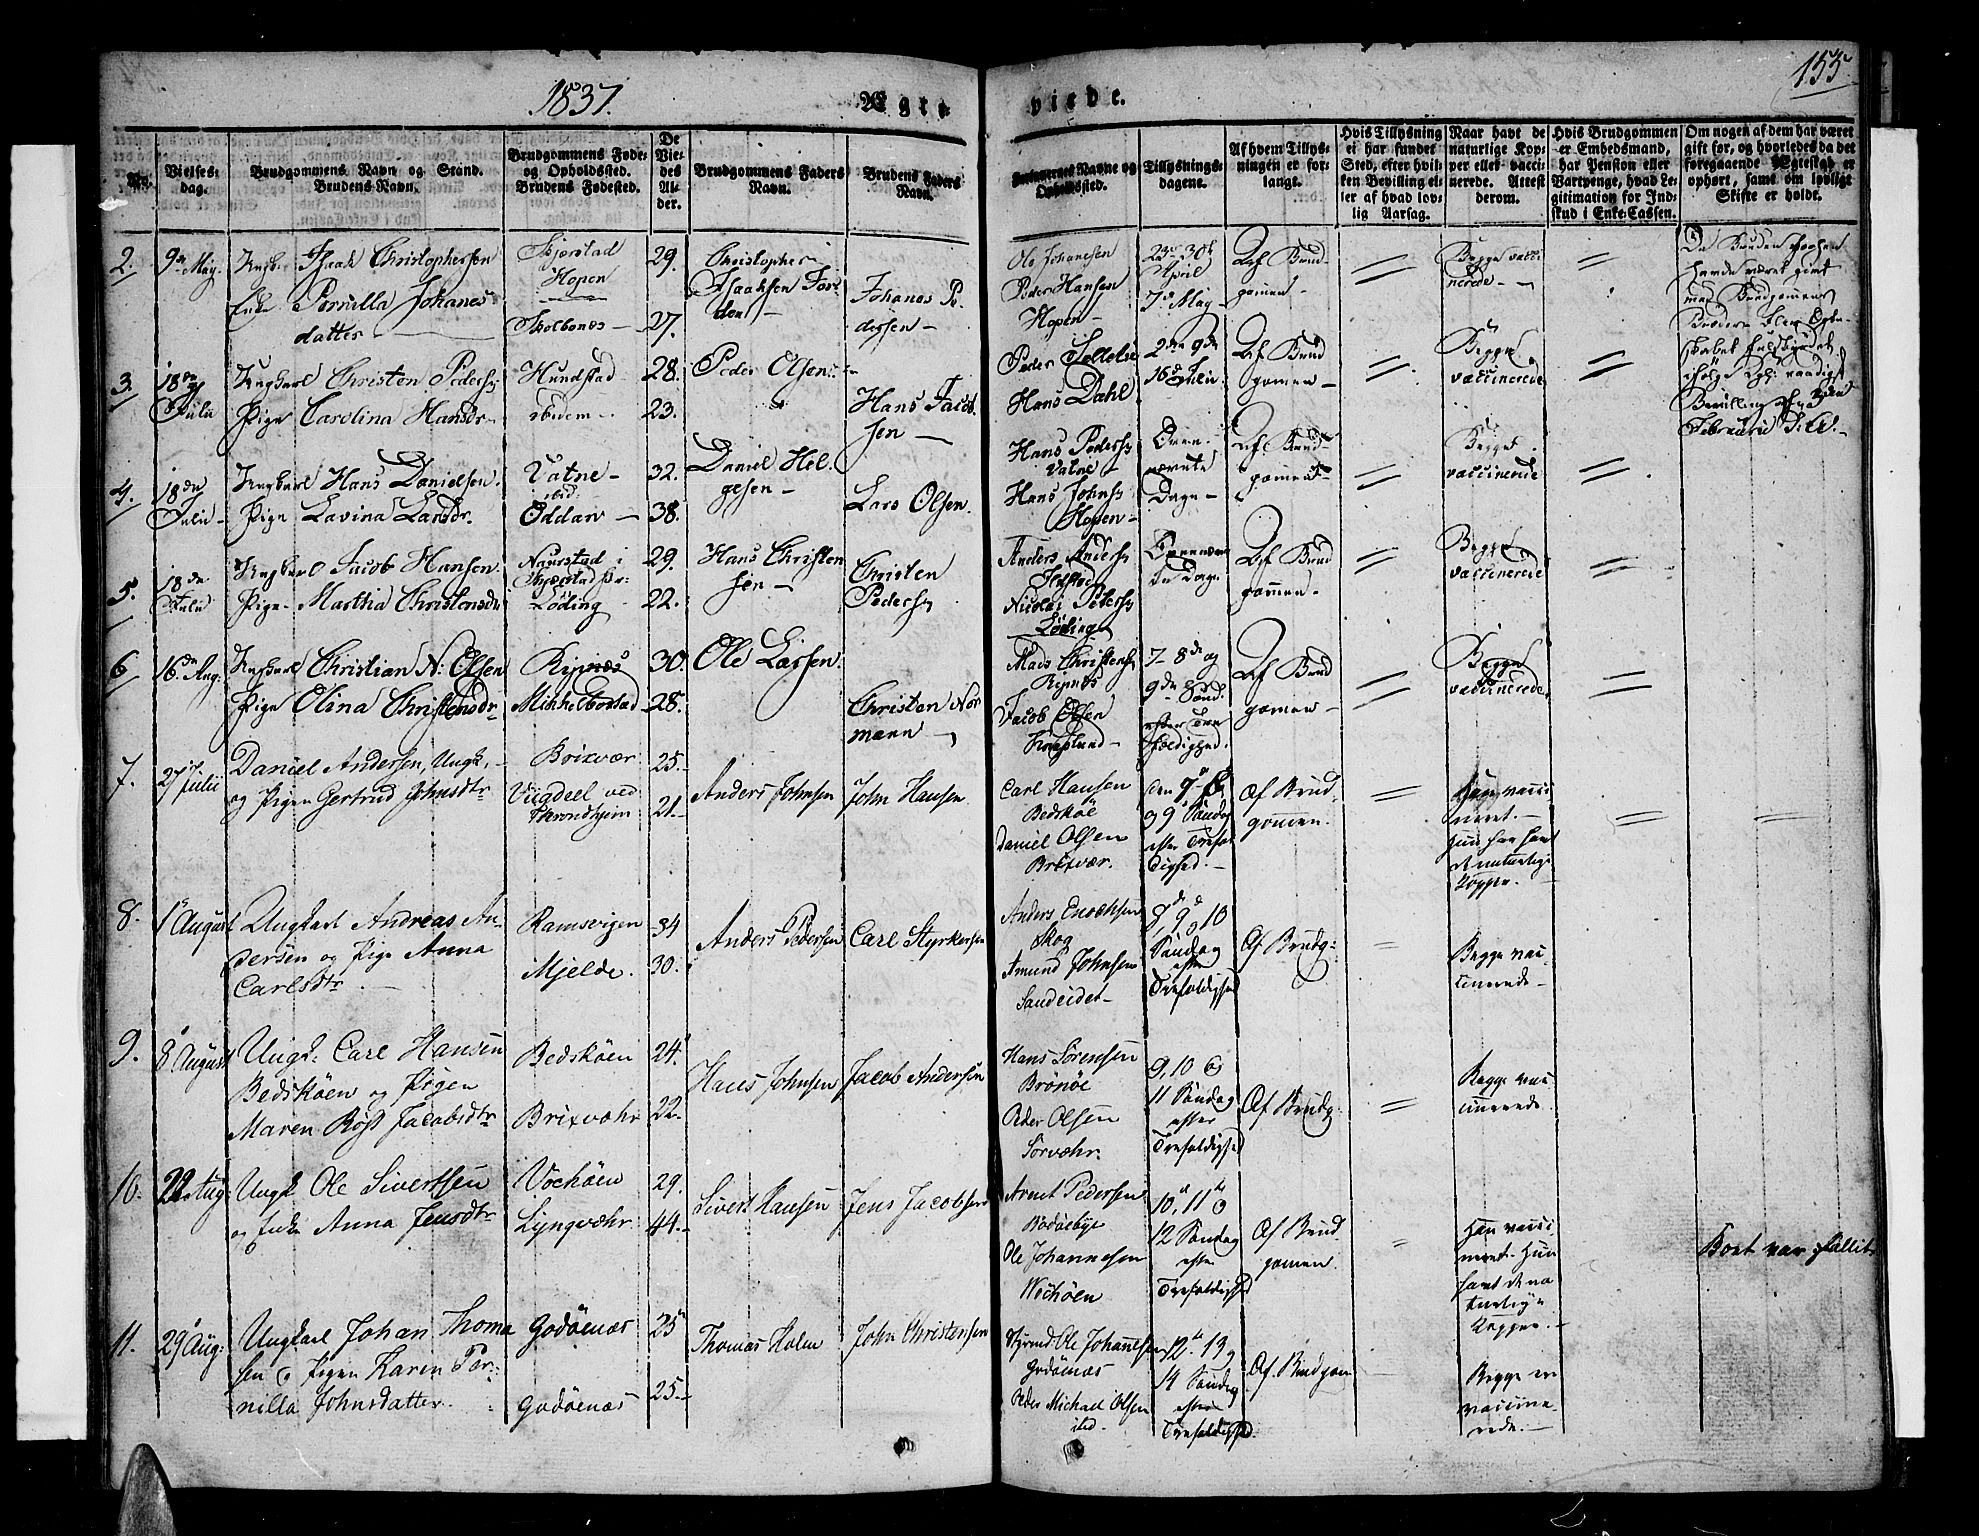 1837.
Ægte
viede.
155
No.
Vielses-
dag.
Brudgommens Navn og Stand.
Brudens Navn.
Brudgommens Føde-
og Opholdssted.
Brudens Fødested.
De
Vie-
des
Al-
der.
Brudgommens Faders
Navn.
Brudens Faders
Navn.
Forlovernes Navne og
Opholdssted.
Tillysnings-
dagene.
Af hvem Tillys-
ningen er for-
langt.
Hvis Tillysning
ei har fundet
Sted, efter hvil-
ken Bevilling el-
ler af hvad lov-
lig Aarsag.
Naar havt de
naturlige Kop-
per eller vacci-
nerede. Attest
derom.
Hvis Brudgommen
er Embedsmand,
har Pension eller
Vartpenge, hvad Le-
gitimation for Ind-
skud i Enke-Cassen.
Om nogen af dem har været
gift før, og hvorledes da det
foregaaende Ægteskab er
ophørt, samt om lovligt
Skifte er holdt.
2. 9de May.
Isaak Christophersen
Enke Pernilla Johanes
datter
Skjerstad
Hopen
29.
27.
Christopher
Isaaksen
Johanes Pe
dersen
Ole Johanesen
Peder Hansen
Hopen
23de 30te
April
7de May
Af Brud
gomen
Begge vacci
nerede
Februarii
3. 18de
Julii
Ungkarl Christen Peders.
Pige Carolina Hansdr
Hundstad
ibidem
28.
23.
Peder Olsen
Hans Jacob
sen
Peder
Hans Dahl
2den 9de
16de Julii
Af Brud
gomen
Begge
vaccinerede
4. 18de
Julii
Ungkarl Hans Danielsen.
Pige Lavina Larsdr.
Vatne
Oddan
32.
38.
Daniel Hel
gesen
Lars Olsen.
Hans Peders.
Vatne
Hans Johns.
Hopen
Oven
nævnte
Dage
Af Brud
gomen
Begge
vaccinerede
5. 18de
Julii
Ungkarl Jacob Hansen
Pige Martha Christensdr
Naurstad i
Skjerstad Pr.
Løding
29.
22.
Hans Christen
sen
Christen
Peders.
Anders Anders.
Nicolai Peters.
Løding
Af Brud
gomen
Begge
vaccinerede
6 16de Aug.
Ungkarl Christian N: Olsen
Pige Olina Christensdr
Ripnæs
Mikkelborstad
30.
28.
Ole Larsen.
Christen Nor
mann
Mads Christens.
Ripnæs
Jacob Olsen
7- 8de og
9de Sønd.
efter Tre
foldighed
Af Brud
gomen
Begge
vaccinerede.
7. 27 Julii
Daniel Andersen, Ungk,
og Pigen Gertrud Johnsdtr
Brixvær
Viigdeel ved
Throndhjem
25.
21.
Anders Johnsen
John Hansen
Carl Hansen
Bedskøe
Daniel Olsen
Brixvær.
den 7de 8
og 9 Søndag
efter Trefol
dighed.
Af Brud
gomen.
Han vacci
neret.
hun har havt
de naturlige
Kopper.
8. 1 August
Ungkarl Andreas An
dersen og Pige Anna
Carlsdtr.
Ramsvigen
Mjelde.
34
30.
Anders Pedersen
Carl Styrkersen
Anders Enochsen
Skog
Amund Johnsen
Sandeidet
8, 9 o 10
Søndag
efter
Trefoldighed
Af Brudg:
Begge vac
cinerede
9. 8 August
Ungk: Carl Hansen
Bedskøen og Pigen
Maren Røst Jacobsdtr
Bedskøen
Brixvæhr
24
22.
Hans Johnsen
Jacob Andersen
Hans Sørensen
Brønøe
Peder Olsen
Sørvæhr.
9, 10 &
11 Søndag
efter
Trefoldighed
Af Brudg:
Begge vac
cinerede.
10. 22 Aug:
Ungk Ole Sivertsen
og Enke Anna Jensdtr
Vochöen
Lyngvæhr
29.
44.
Sivert Hansen
Jens Jacobsen
Arent Pedersen
Bodøebye
Ole Johannesen
Wochöen
10, 11 o
12 Søndag
efter
Trefoldighed
Af Brud
gomen.
Han vacci
neret. Hun
havt de na
turlige
Kopper.
Boet var fallit
11. 29 Aug:
Ungkarl Johan Thoma
sen o Pigen Karen Per
nilla Johnsdatter.
Godöenæs
Godöenæs
25
25.
Thomas Holm
John Christensen
Styrmd Ole Johannesen
Godöenæs
Peder Michael Olsen
ibd.
12, 13 o
14 Søndag
efter
Trefoldighed.
Af Brudgom
Begge er
vaccine
rede.